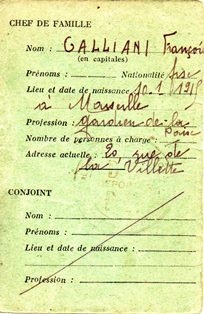 CHEF DE FAMILLE
Nom : GALLIANI François
(en capitales)
Prénoms : Nationalité frse
Lieu et date de naissance 10.1.1918
à Marseille
Profession : gardien de la
Paix
Nombre de personnes à charge :
Adresse actuelle : 20, rue de
la Villette
CONJOINT
Nom :
Prénoms :
Lieu et date de naissance :
Profession :